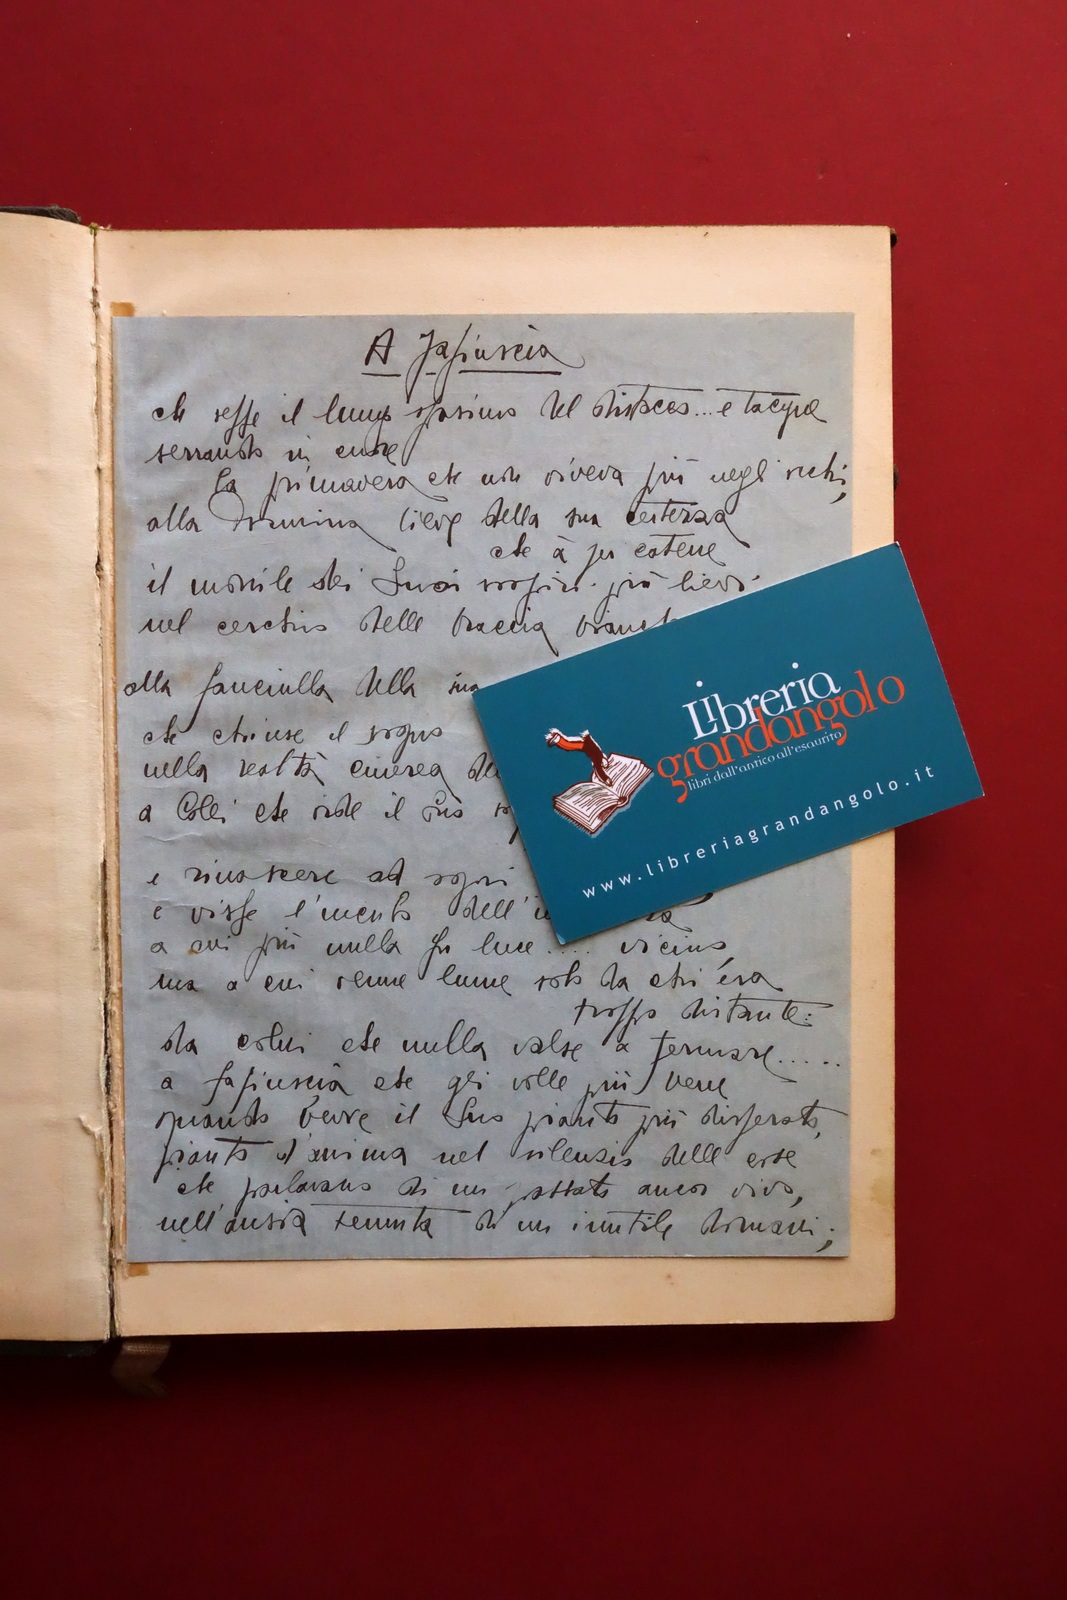 A Fafiuscià
che resse il lungo spasimo del distacco... e tacque
serrando in cuore
la primavera che non viveva più negli occhi,
alla lieve della sua certezza
che à per catene
il monile dei Suoi sospiri più lievi
nel cerchio delle braccia
alla fanciulla della sua
che chiuse il sogno
nella realtà cinerea
a Colei che vide il Suo
e rinascere ad ogni
e visse l'incanto dell'
a cui più nulla fu luce.... vicino,
ma a cui venne lume solo da chi éra
troppo distante:
da colui che nulla valse a fermare.....
a Fafiuscià che gli volle più bene
quando bevve il Suo pianto più disperato,
pianto d'anima nel silenzio delle cose
che parlavano di un passato ancor vivo,
nell'ansia di un inutile domani;
Libreria
grandangolo
libri dall'antico all'esaurito
www.libreriagrandangolo.it